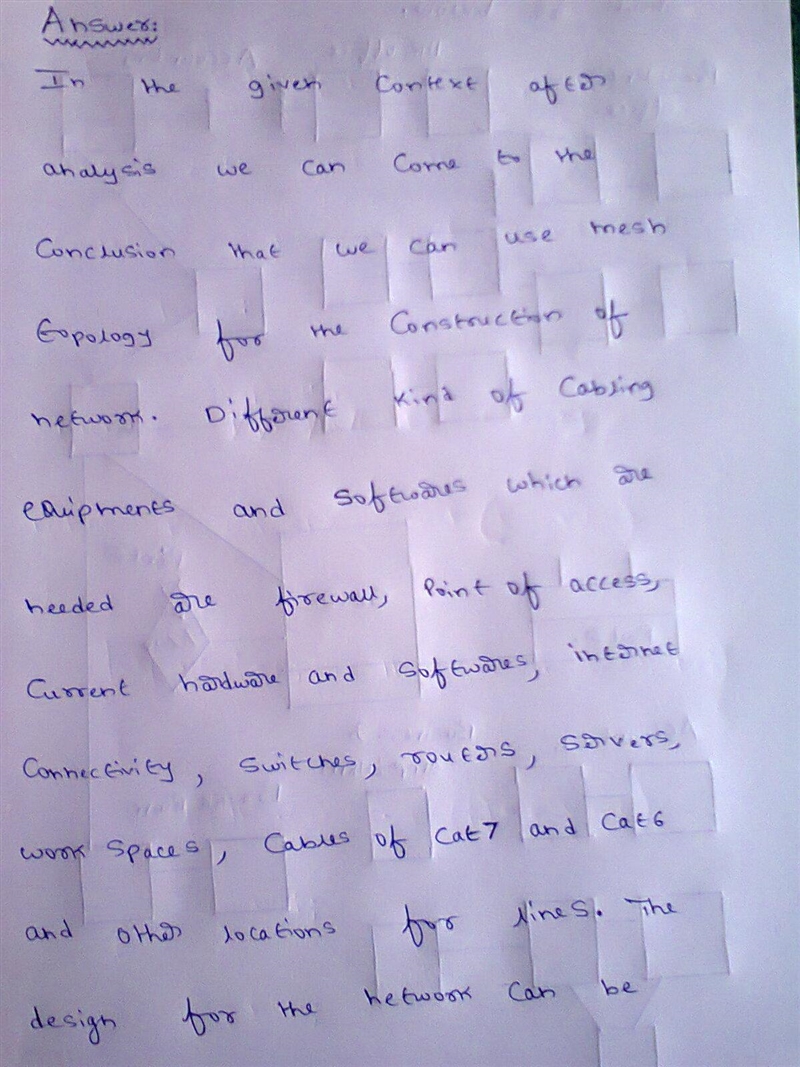 Answer:
In the given Context after
analysis we can Come to the
Conclusion that we can use mesh
topology for the Construction of
network. Different kind of Cabling
equipments and Softwares which are
needed are firewall, Point of access,
Current hardware and Softwares, internet
Connectivity, Switches, routers, Servers,
work Spaces, Cables of Cat7 and Cat6
and other locations for lines. The
design for the network Can be